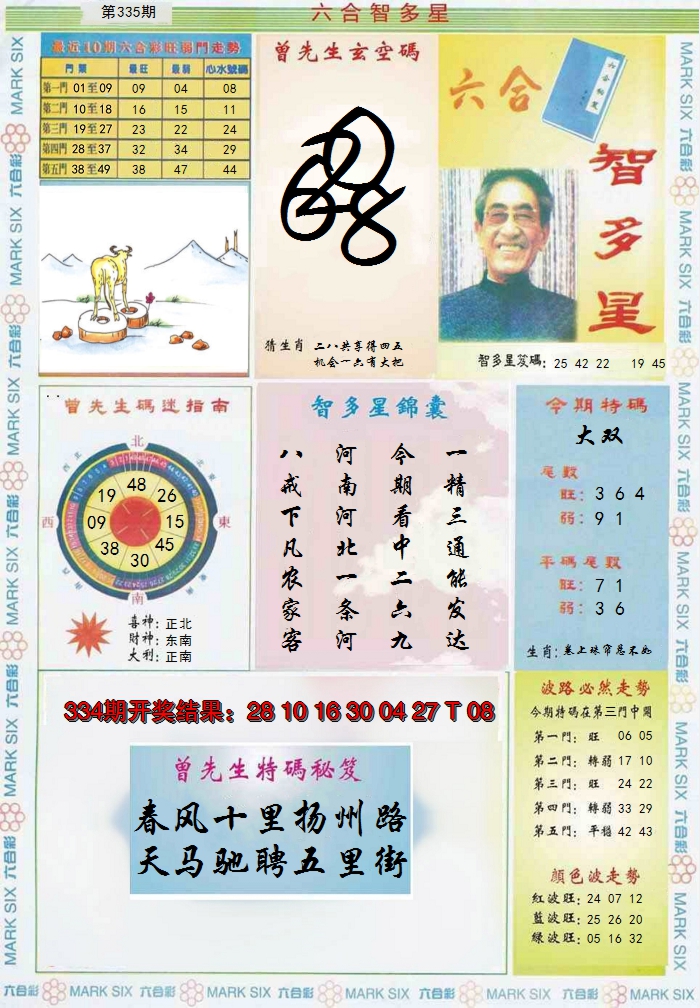 第335期
六合智多星
最近10期六合彩旺弱門走勢
門類 最旺 最弱 心水號碼
第一門 01至09 09 04 08
第二門 10至18 16 15 11
第三門 19至27 23 22 24
第四門 28至37 32 34 29
第五門 38至49 38 47 44
曾先生玄空碼
猜生肖 二八共享得四五
机会一六有大把
六合
智多星
智多星笈碼: 25 42 22 19 45
曾先生碼迷指南
北
東
南
西
48
26
15
45
30
38
09
19
喜神: 正北
财神: 东南
大利: 正南
智多星錦囊
一精三通能发达
今期看中二六九
河南河北一条河
八戒下凡农家客
今期特碼
大双
尾數
旺: 3 6 4
弱: 9 1
平碼尾數
旺: 7 1
弱: 3 6
生肖: 卷上珠帘总不如
334期开奖结果: 28 10 16 30 04 27 T 08
曾先生特碼秘笈
春风十里扬州路
天马驰聘五里街
波路必然走勢
今期特碼在第三門中開
第一門: 旺 06 05
第二門: 轉弱 17 10
第三門: 旺 24 22
第四門: 轉弱 33 29
第五門: 平穩 42 43
顔色波走勢
紅波旺: 24 07 12
藍波旺: 25 26 20
绿波旺: 05 16 32
六合彩 MARK SIX 六合彩 MARK SIX 六合彩 MARK SIX 六合彩 MARK SIX 六合彩